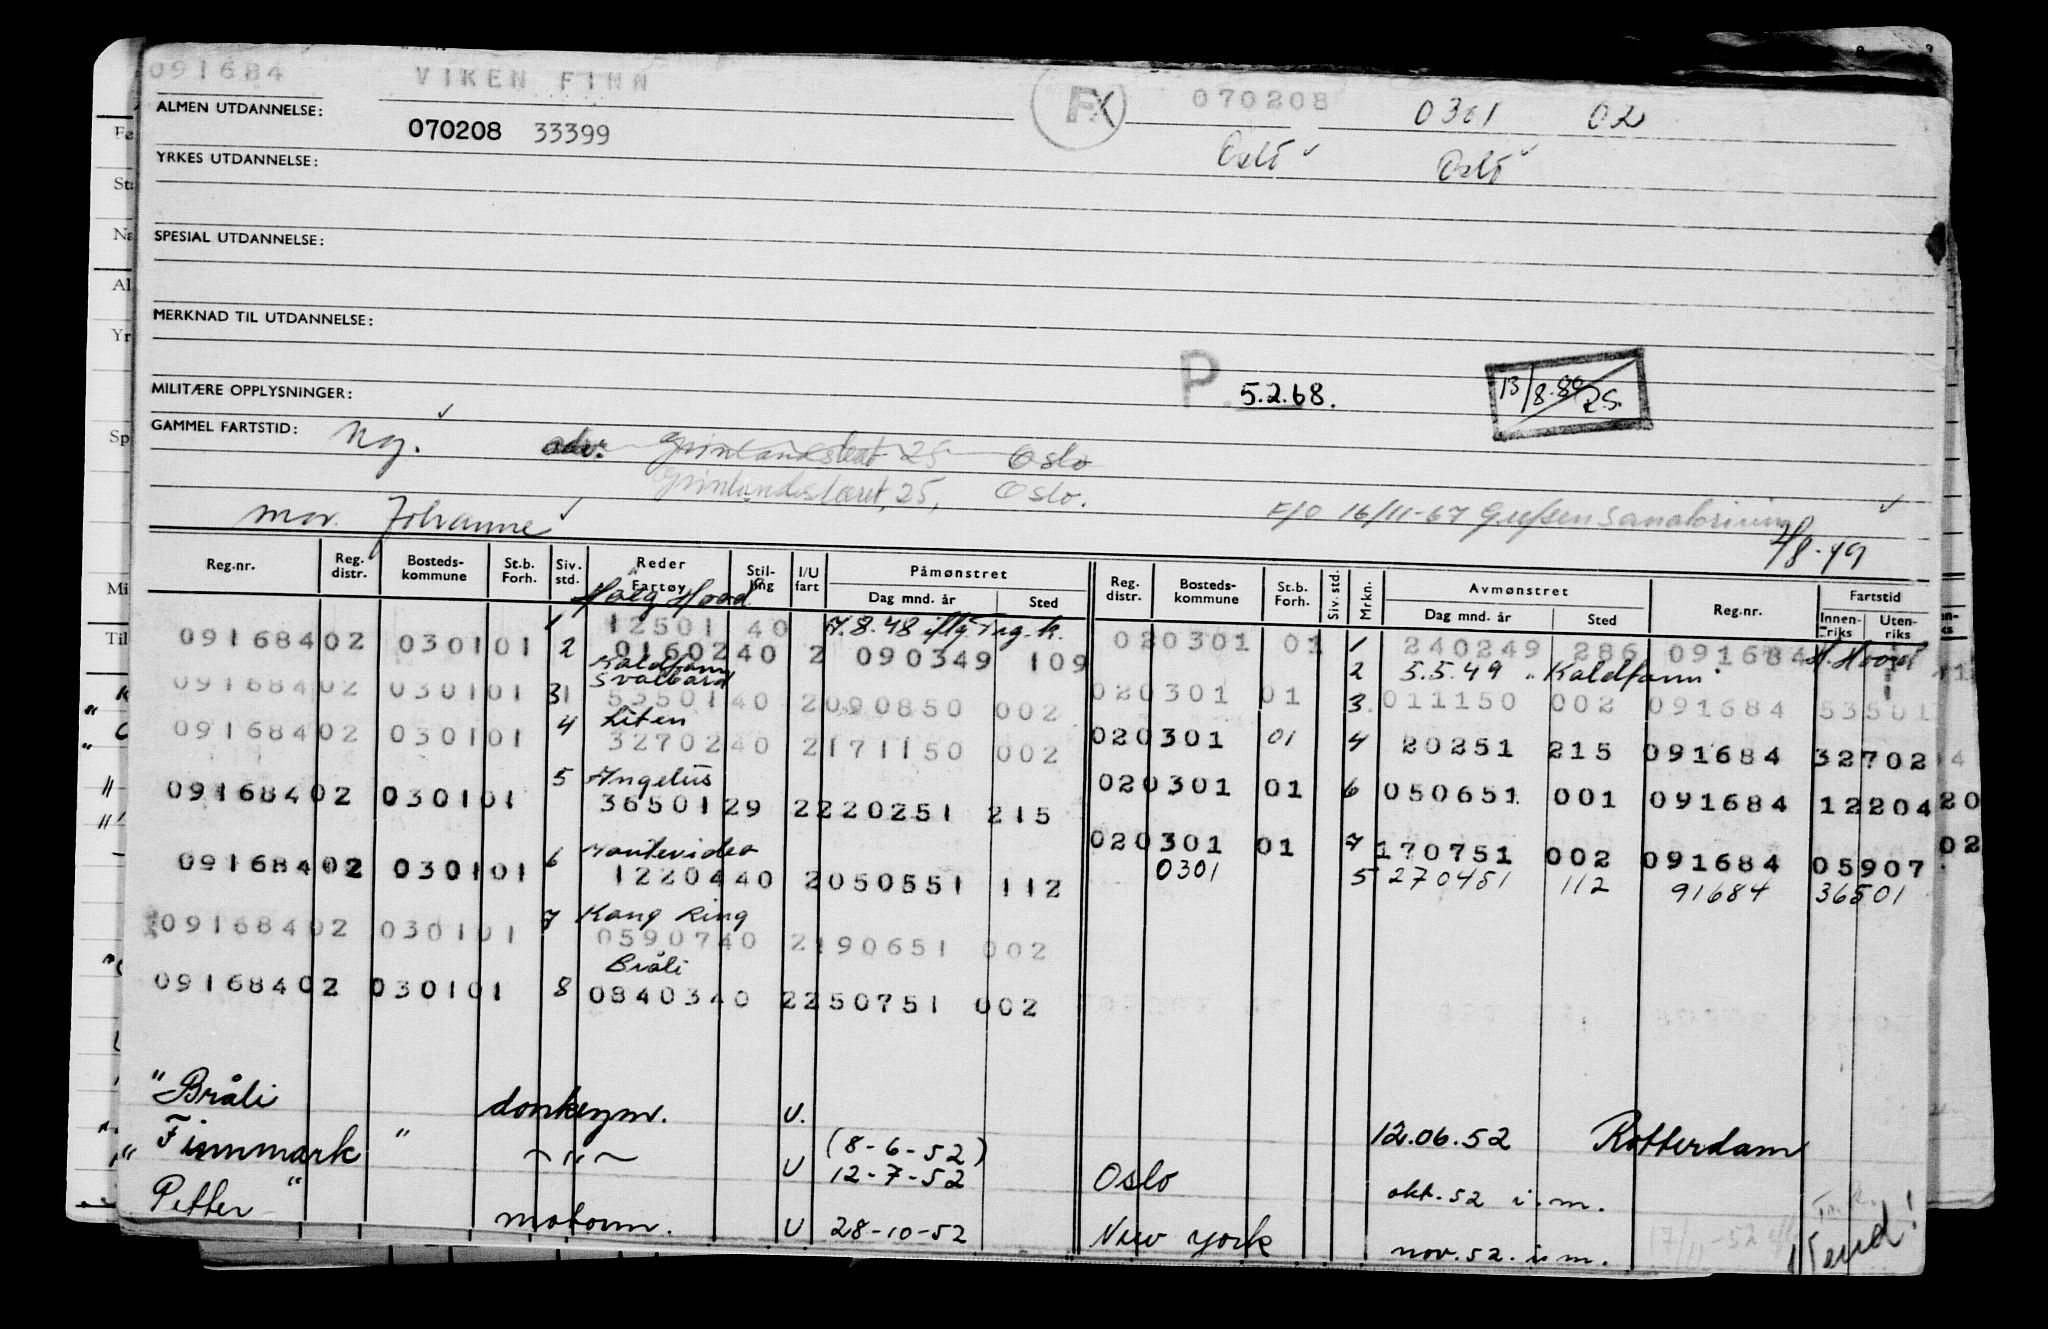 091684 VIKEN FINN FX 070208 0301 02
ALMEN UTDANNELSE: 070208 33399 Oslo Oslo
YRKES UTDANNELSE:
SPESIAL UTDANNELSE:
MERKNAD TIL UTDANNELSE:
MILITÆRE OPPLYSNINGER: P. 5.2.68. 13/8.80
GAMMEL FARTSTID: Ng. adr. Grønlandsleret 25 Oslo
Grønlandsleret, 25, Oslo.
mor. Johanne F/O 16/11-67 Grefsen Sanatorium
/8-49
Reg.nr. Reg. distr. Bosteds-kommune St.b. Forh. Siv. std. Reder Fartøy Stil-ling I/U fart Påmønstret Dag mnd. år Sted Reg. distr. Bosteds-kommune St.b. Forh. Siv. std. Mrkn. Avmønstret Dag mnd. år Sted Reg.nr. Fartstid Innen-riks Uten-riks
Høegh Hood
1 12501 40 7.8.48 iflg. Trg.k. 020301 01 1 240249 286 091684 H. Hood
091684 02 0301 01 2 01602 40 2 090349 109 2 5.5.49 "Kaldfonn"
Kaldfonn
Svalbard
091684 02 0301 01 3 53501 40 2 090850 002 020301 01 3 011150 002 091684 53501
4 Liten
091684 02 0301 01 32702 40 2 171150 002 020301 01 4 20251 215 091684 32702
5 Angelus
091684 02 0301 01 36501 29 2 220251 215 020301 01 6 050651 001 091684 12204
6 Montevideo
091684 02 0301 01 12204 40 2 050551 112 020301 01 7 170751 002 091684 05907
0301 5 270451 112 91684 36501
7 Kong Ring
091684 02 0301 01 05907 40 2 190651 002
Bråli
091684 02 0301 01 8 08403 40 2 250751 002
"Bråli donkeym. U. 12.06.52 Rotterdam
(8-6-52)
"Finnmark" -"- U 12-7-52 Oslo okt. 52 i.m.
Petter" motorm. U 28-10-52 New York nov. 52. i m. 17/11-52
Vend!